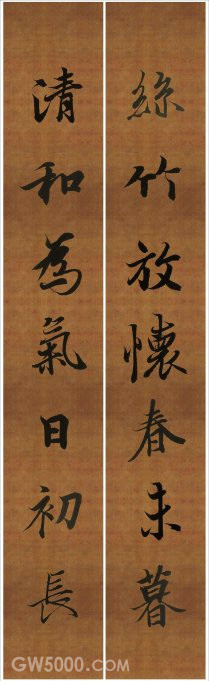 絲竹放懷春未暮
清和為氣日初長
GW5000.com